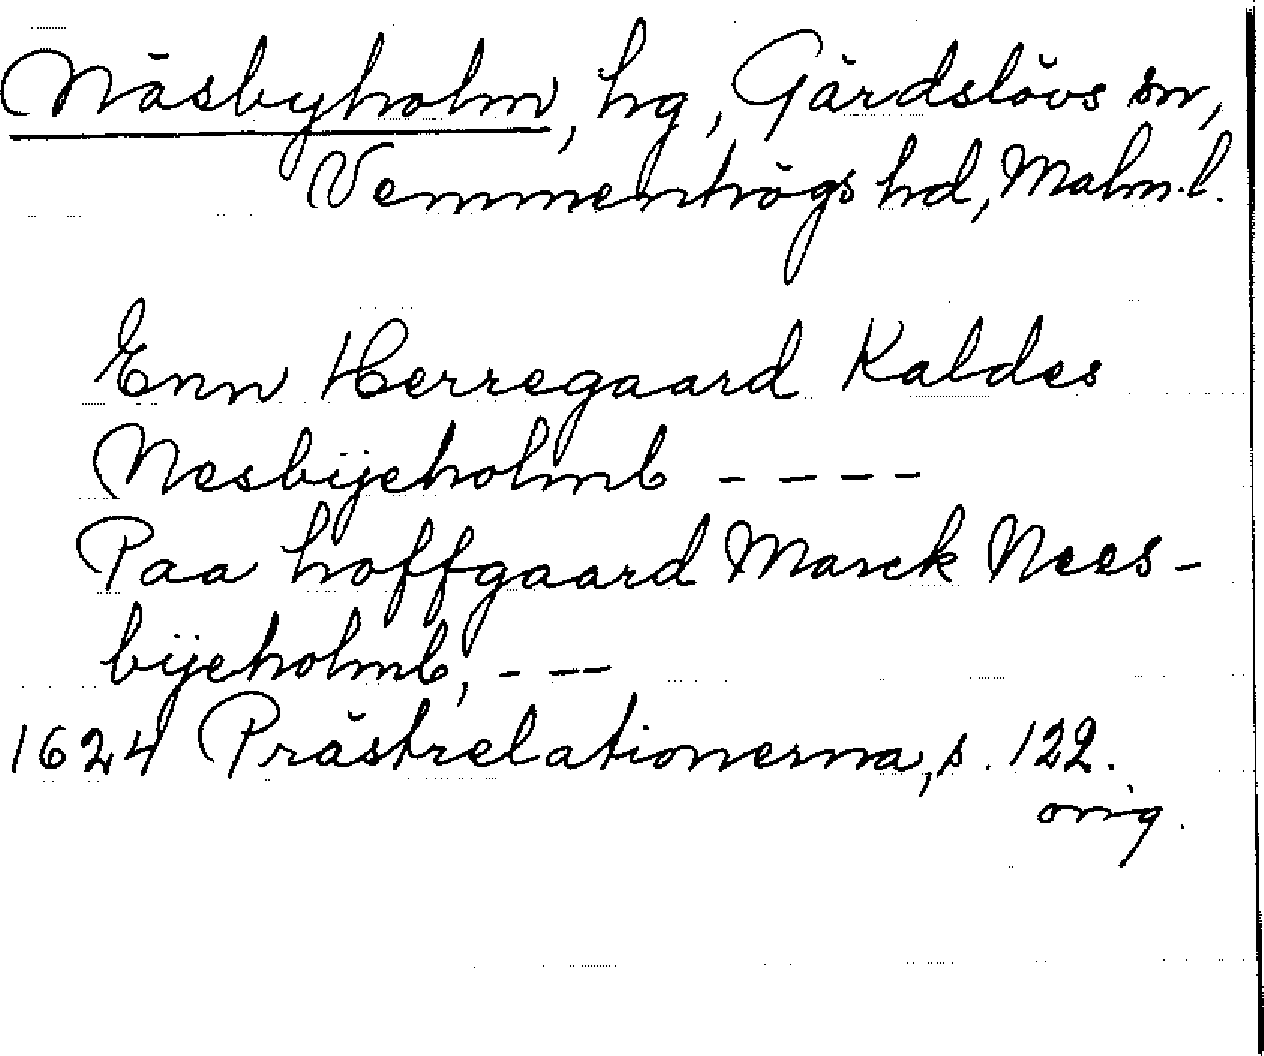 Näsbyholm, hg, Gärdslövs sn,
Vemmenhögs hd, Malm.l.
Enn Herregaard Kaldes
Nesbÿeholmb - - - -
Paa hoffgaard Marck Nees-
bÿeholmb, - - -
1624 Prästrelationerna, s. 122.
orig.